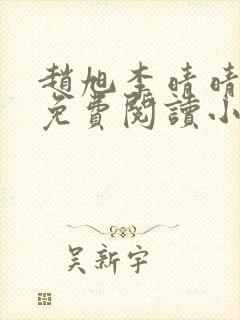 趙旭李晴晴
免費閱讀小
吴新宇